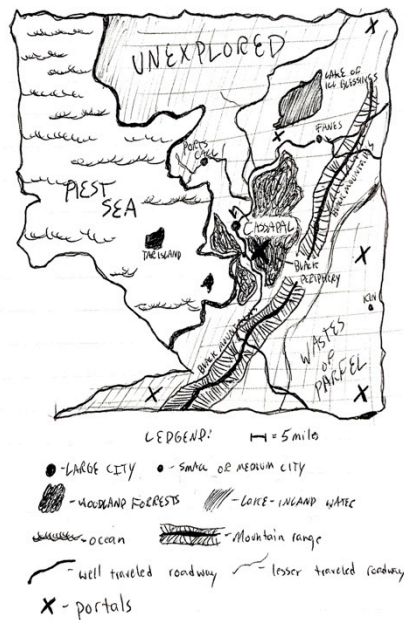 UNEXPLORED
LAKE OF
ILL BLESSINGS
FANES
PORTS
PIEST
SEA
CASSAPAL
TAR ISLAND
BLACK
PERIPHERY
BLACK MOUNTAINS
WASTES
OF
PARFEL
LEDGEND:
= 5 miles
- LARGE CITY
- SMALL OR MEDIUM CITY
- WOODLAND FORRESTS
- LAKE - INLAND WATER
- ocean
- Mountain range
- well traveled roadway
- lesser traveled roadway
X - portals